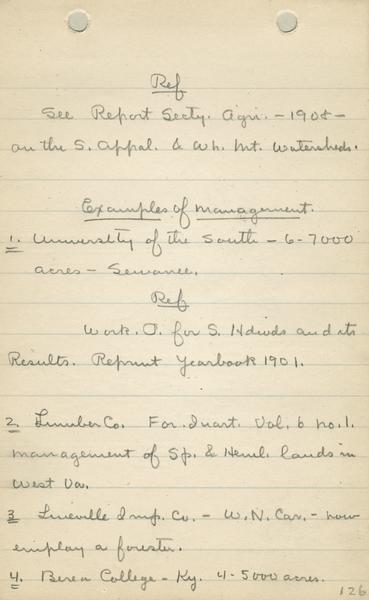 Ref
See Report Secty. Agri. - 1908 -
on the S. Appal. & Wh. Mt. Watersheds.
Examples of management.
1. University of the South - 6-7000
acres - Sewanee.
Ref
Work. P. for S. Hdwds and its
Results. Reprint Yearbook 1901.
2. Lumber Co. For. Quart. Vol. 6 no. 1.
management of Sp. & Heml. lands in
West Va.
3 Lineville Imp. Co. - W. N. Car. - now
employ a forester.
4. Berea College - Ky. 4-5000 acres.
126